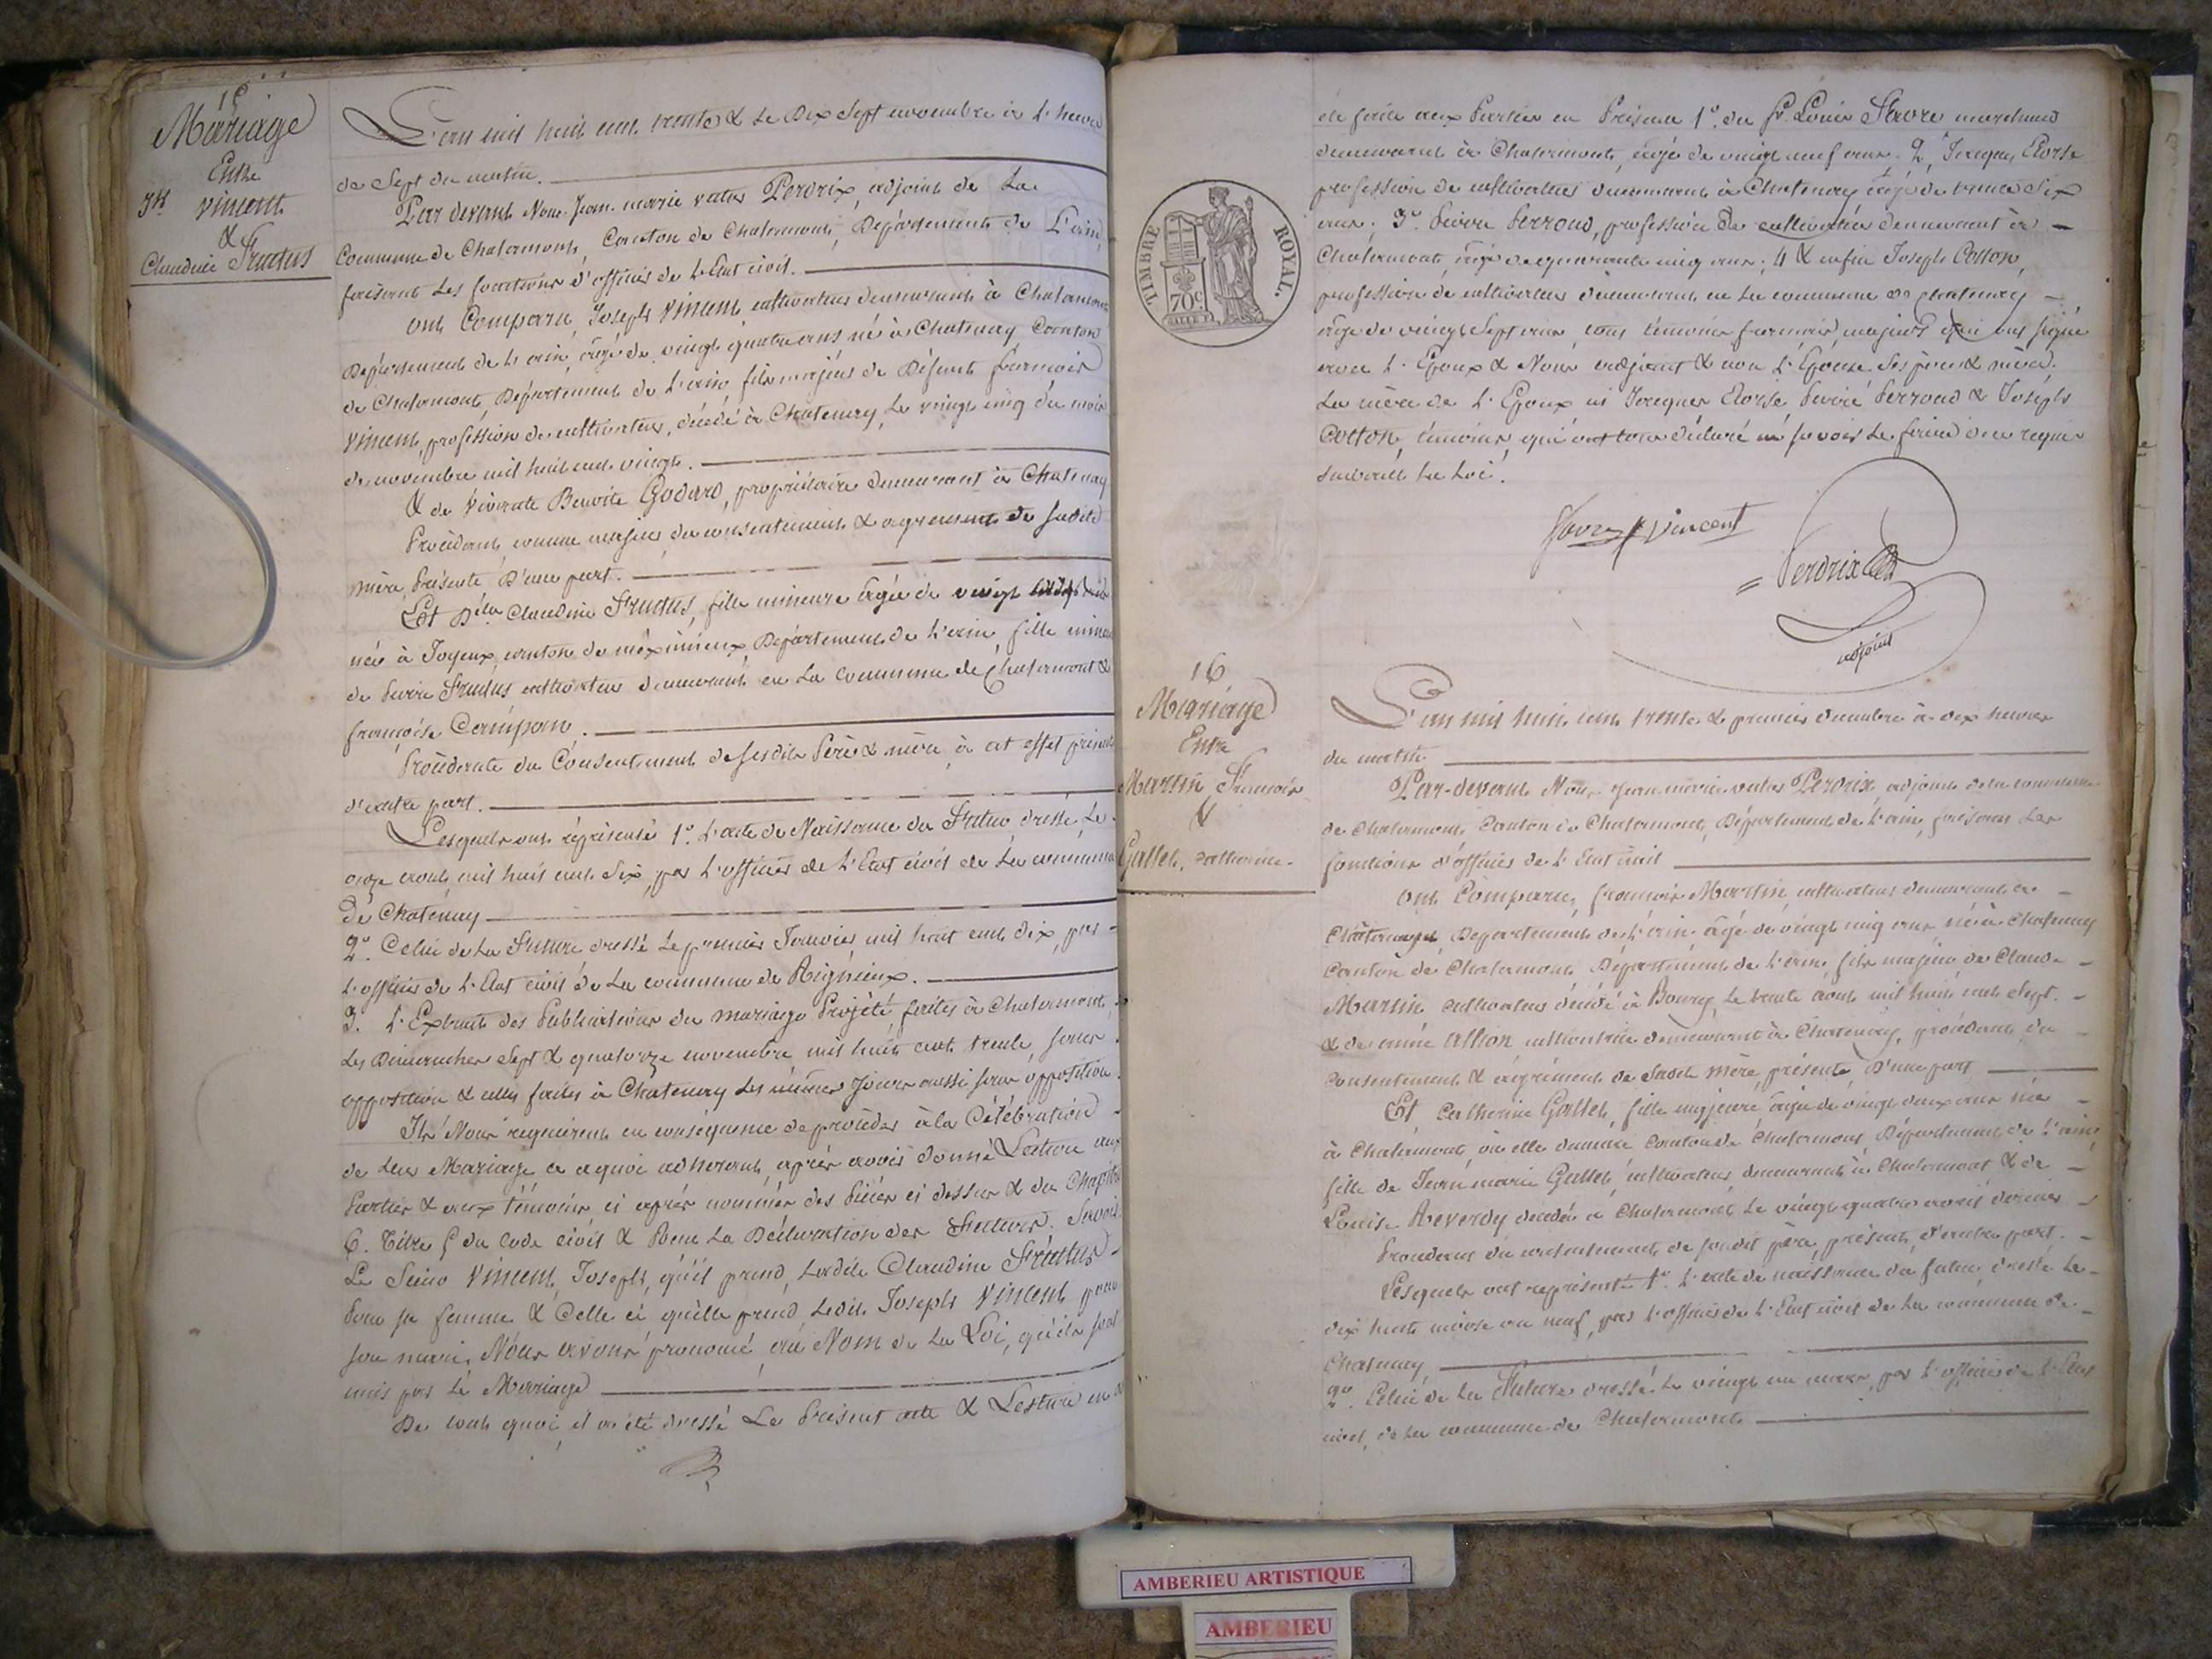 15
Mariage
Entre
Jh vincent
&
Claudine Fructus
L'an mil huit cent trente & Le Dix Sept novembre à L'heure
de Sept du matin.
Par devant Nous Jean marie Perdrix, adjoint de La
Commune de Chalamont, Canton de Chalamont, Département de L'ain,
faisant Les fonctions d'officier de L'Etat civil.
ont Comparu, Joseph Vincent cultivateur demeurant à Chalamont
Département de L'ain, âgé de vingt quatre ans né à Chatenay Canton
de Chalamont, Département de L'ain, fils majeur de Défunt francois
Vincent, profession de cultivateur, décédé à Chatenay, Le vingt cinq du mois
de novembre mil huit cent vingt.
& de vivante Benoite Godard, propriétaire demeurant à Chatenay
Procédant comme majeur du consentement & agrément de Sadite
mère, Présente, D'une part.
Et Dlle Claudine Fructus, fille mineure âgée de vingt
née à Joyeux, canton de méximieux, Département de L'ain, fille mineure
de Pierre Fructus cultivateur demeurant en La Commune de Chalamont &
françoise Campan.
Procédante du Consentement de Sesdits Père & mère, à cet effet présents
d'autre part.
Lesquels ont représenté 1o. L'acte de Naissance du Futur, dressé, Le
onze août mil huit cent Six, par L'officier de L'Etat civil de La commune
De Chatenay
2o. Celui de La Future dressé Le premier Janvier mil huit cent dix, par
L'officier de L'Etat civil de La commune de Rignieux.
3o. L'Extrait des Publications du mariage Projété, faites à Chalamont,
Les Dimanches Sept & quatorze novembre mil huit cent trente, sans
opposition & celles faites à Chatenay Les mêmes Jours aussi sans opposition.
Ils Nous requièrent en conséquence de procéder à la Célébration
de Leur Mariage à quoi adhérant, après avoir donné Lecture aux
Parties & aux témoins ci après nommés des Pièces ci dessus & du Chapitre
6. Titre 5 du Code civil & Reçu La Déclaration des Futurs. Savoir
Le Sieur Vincent, Joseph, qu'il prend, Ladite Claudine Fructus
Pour sa femme & Celle ci qu'elle prend Ledit Joseph Vincent pour
son mari. Nous avons prononcé, au Nom de La Loi, qu'ils sont
unis par Le Mariage
De tout quoi, il a été dressé Le Présent acte & Lecture en a
été faite aux Parties en Présence 1o. du Sr. Louis Favre marchand
demeurant à Chalamont, âgé de vingt neuf ans. 2. Jacques Elorse
profession de cultivateur demeurant à Chatenay âgé de trente Six
ans; 3o. Pierre Perroud, profession de cultivateur demeurant à
Chalamont, âgé de quarante cinq ans; 4 & enfin Joseph Cotton,
profession de cultivateur demeurant en La commune de Chatenay
âgé de vingt Sept ans, tous témoins français, majeurs qui ont signé
avec L'Epoux & Nous adjoint & non L'Epouse, Ses père & mère,
La mère de L'Epoux ni Jacques Elorse, Pierre Perroud & Joseph
Cotton, témoins, qui ont tous déclaré ne savoir Le faire de ce requis
suivant La Loi.
TIMBRE ROYAL.
70c
Favre J Vincent
Perdrix
adjoint
16
Mariage
Entre
Martin François
&
Gallet, Catherine
L'an mil huit cent trente & premier décembre à dix heures
du matin
Par-devant Nous Jean marie Perdrix, adjoint de la commune
de Chalamont, Canton de Chalamont, Département de L'ain, faisant Les
fonctions d'officier de L'Etat civil
ont Comparu, françois Martin, cultivateur demeurant à
Chatenay Département de L'ain âgé de vingt cinq ans né à Chatenay
Canton de Chalamont Département de L'ain, fils majeur de Claude
Martin cultivateur décédé à Bourg, Le trente août mil huit cent Sept.
& de anne cultivatrice demeurant à Chatenay, procédant du
Consentement & agrément de Sadite mère, présente, D'une part
Et Catherine Gallet, fille majeure âgée de vingt deux ans née
à Chalamont, où elle demeure Canton de Chalamont, Département de L'ain
fille de Jean marie Gallet, cultivateur demeurant à Chalamont & de
Louise Reverdy décédée à Chalamont Le vingt quatre avril dernier
Procédant du consentement de Sondit père, présent, d'autre part.
Lesquels ont représenté 1o. L'acte de naissance du futur, dressé Le
dix huit nivose an neuf, par L'officier de L'Etat civil de La commune de
Chatenay,
2o. Celui de La Future dressé Le vingt un mars, par L'officier de L'Etat
civil, de La commune de Chalamont
AMBERIEU ARTISTIQUE
AMBERIEU